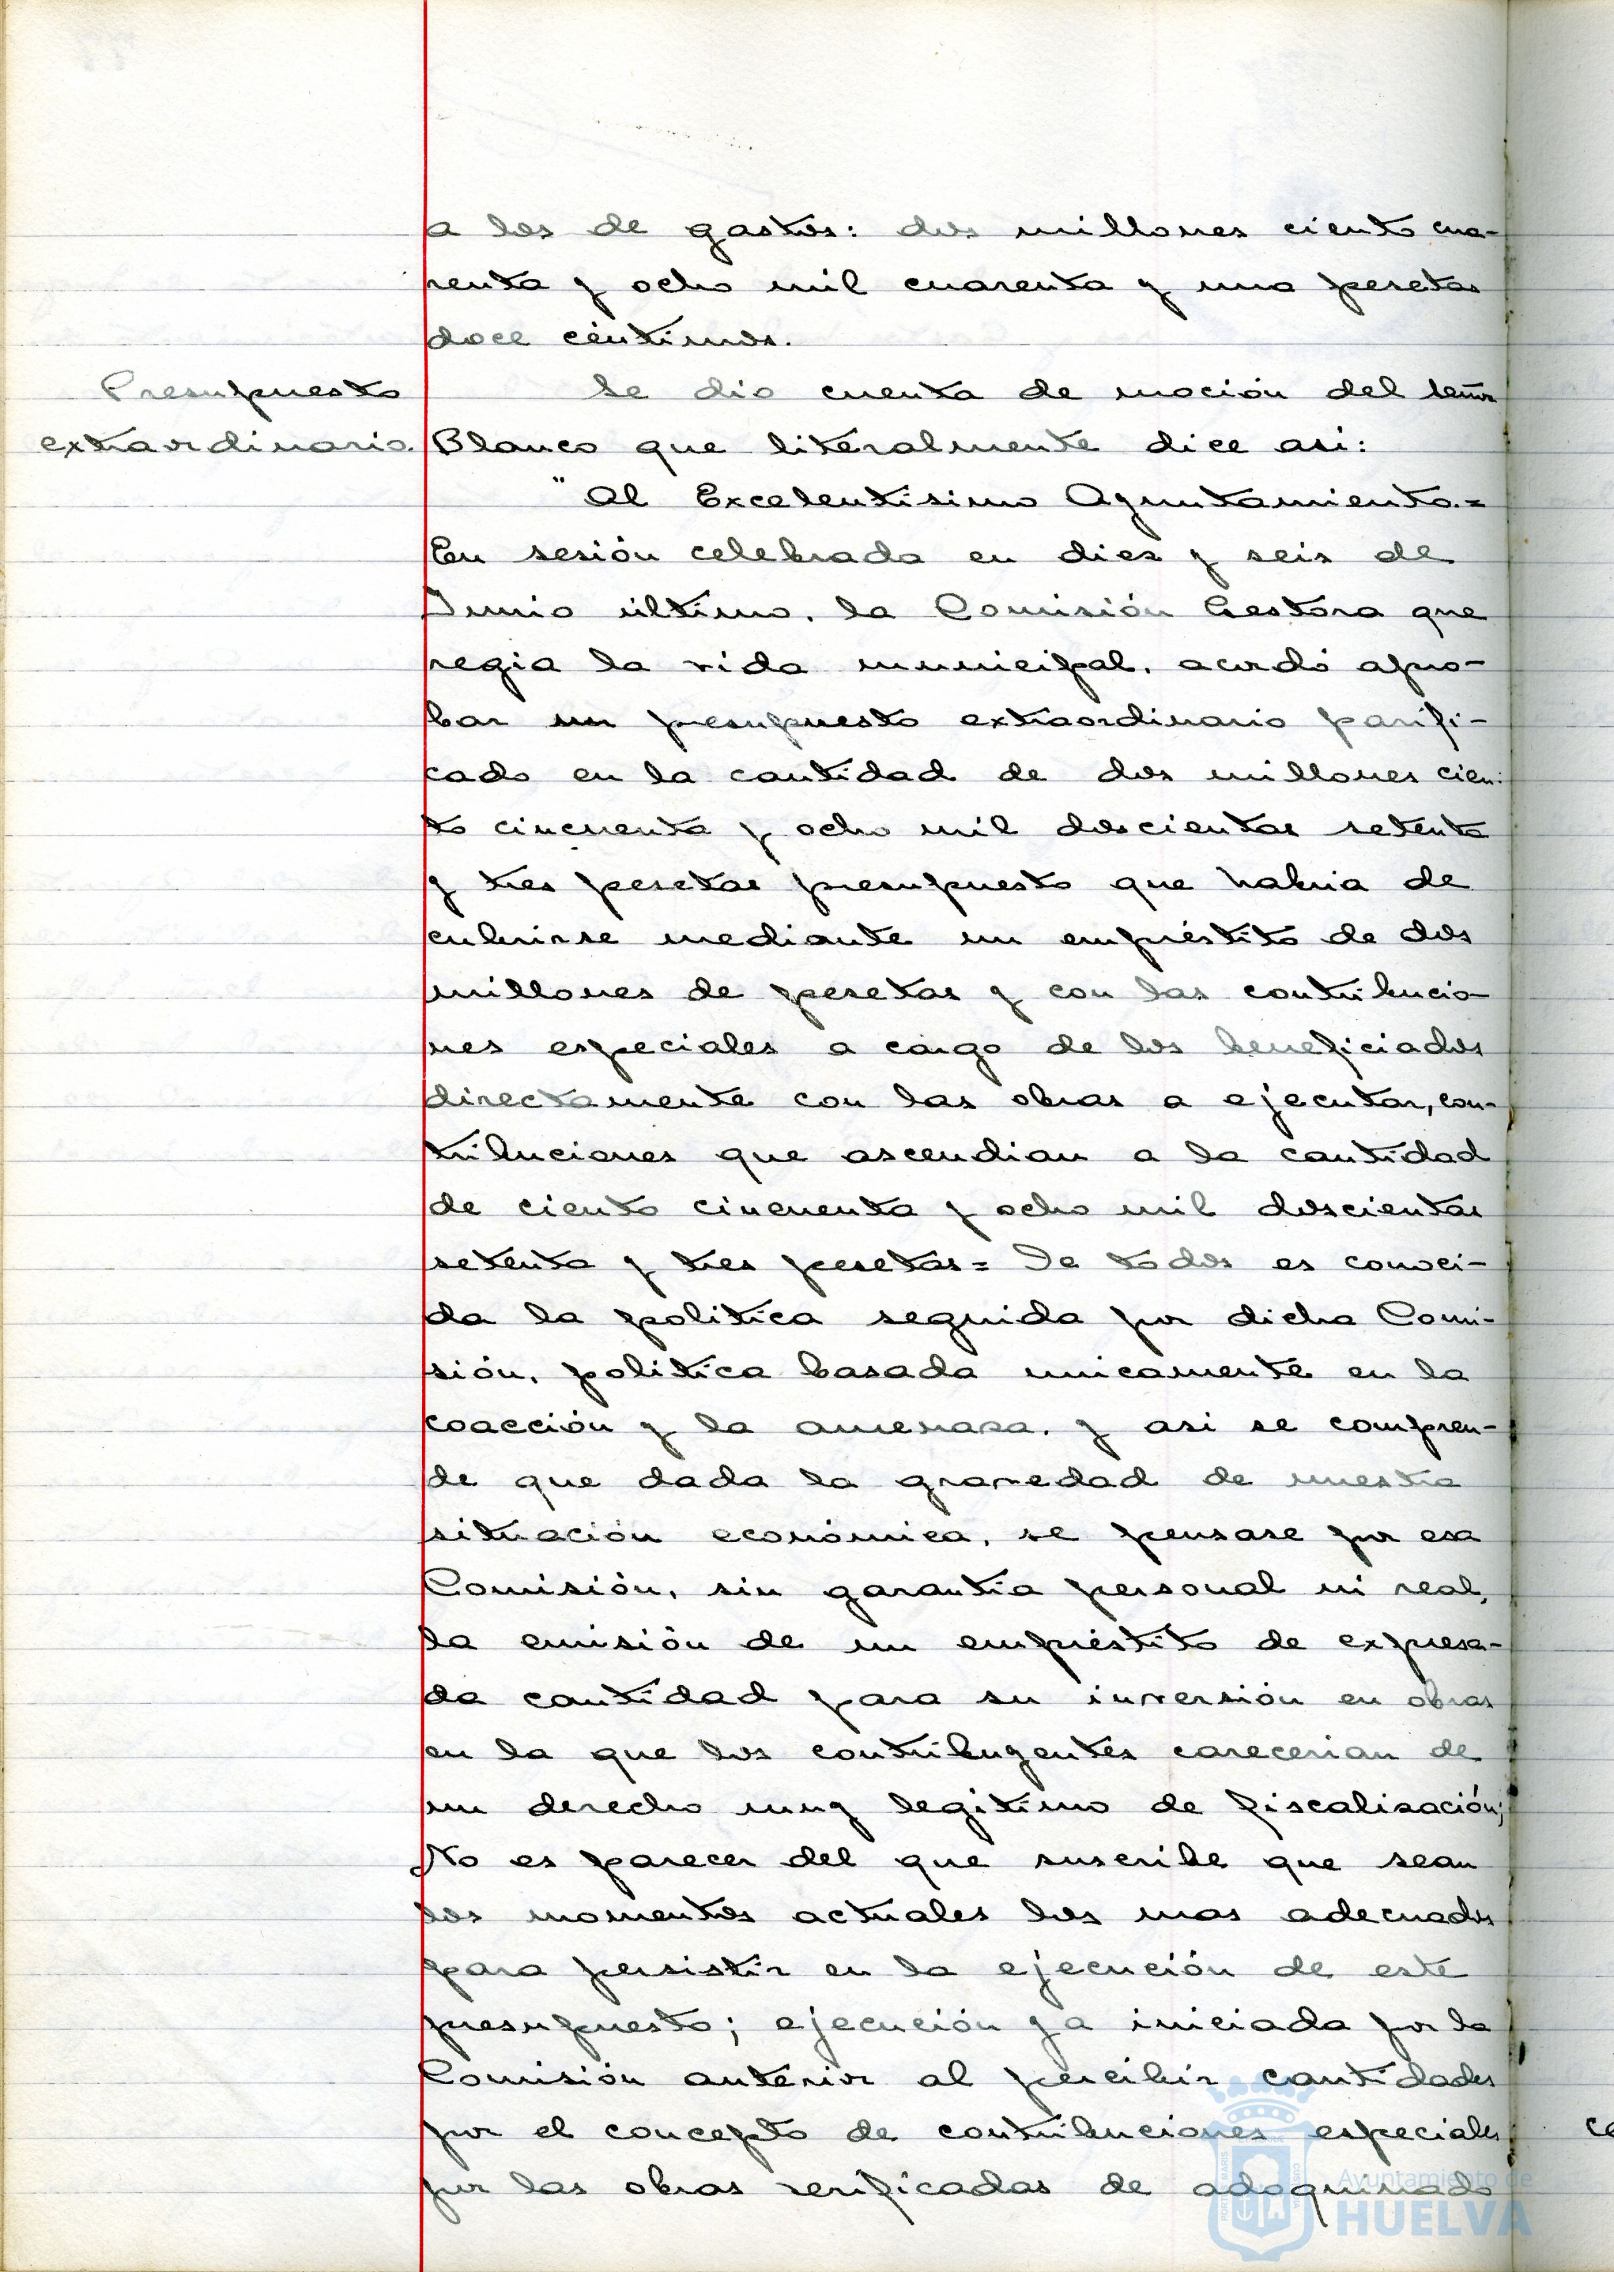 a los de gastos: dos millones ciento cua-
renta y ocho mil cuarenta y una pesetas
doce céntimos.
Presupuesto
extraordinario.
Se dio cuenta de moción del señor
Blanco que literalmente dice asi:
"Al Excelentisimo Ayuntamiento.=
En sesión celebrada en diez y seis de
Junio último, la Comisión Gestora que
regia la vida municipal, acordó apro-
bar un presupuesto extraordinario parifi-
cado en la cantidad de dos millones cien-
to cincuenta y ocho mil doscientas setenta
y tres pesetas presupuesto que habria de
cubrirse mediante un empréstito de dos
millones de pesetas y con las contribucio-
nes especiales a cargo de los beneficiados
directamente con las obras a ejecutar, con-
tribuciones que ascendian a la cantidad
de ciento cincuenta y ocho mil doscientas
setenta y tres pesetas= De todos es conoci-
da la politica seguida por dicha Comi-
sión, politica basada unicamente en la
coacción y la amenaza, y asi se compren-
de que dada la gravedad de nuestra
situación económica, se pensase por esa
Comisión, sin garantia personal ni real,
la emisión de un empréstito de expresa-
da cantidad para su inversión en obras
en la que los contribuyentes carecerian de
un derecho muy legitimo de fiscalización;
No es parecer del que suscribe que sean
los momentos actuales los mas adecuados
para persistir en la ejecución de este
presupuesto; ejecución ya iniciada por la
Comisión anterior al percibir cantidades
por el concepto de contribuciones especiales
por las obras verificadas de adoquinado
Ayuntamiento de
HUELVA